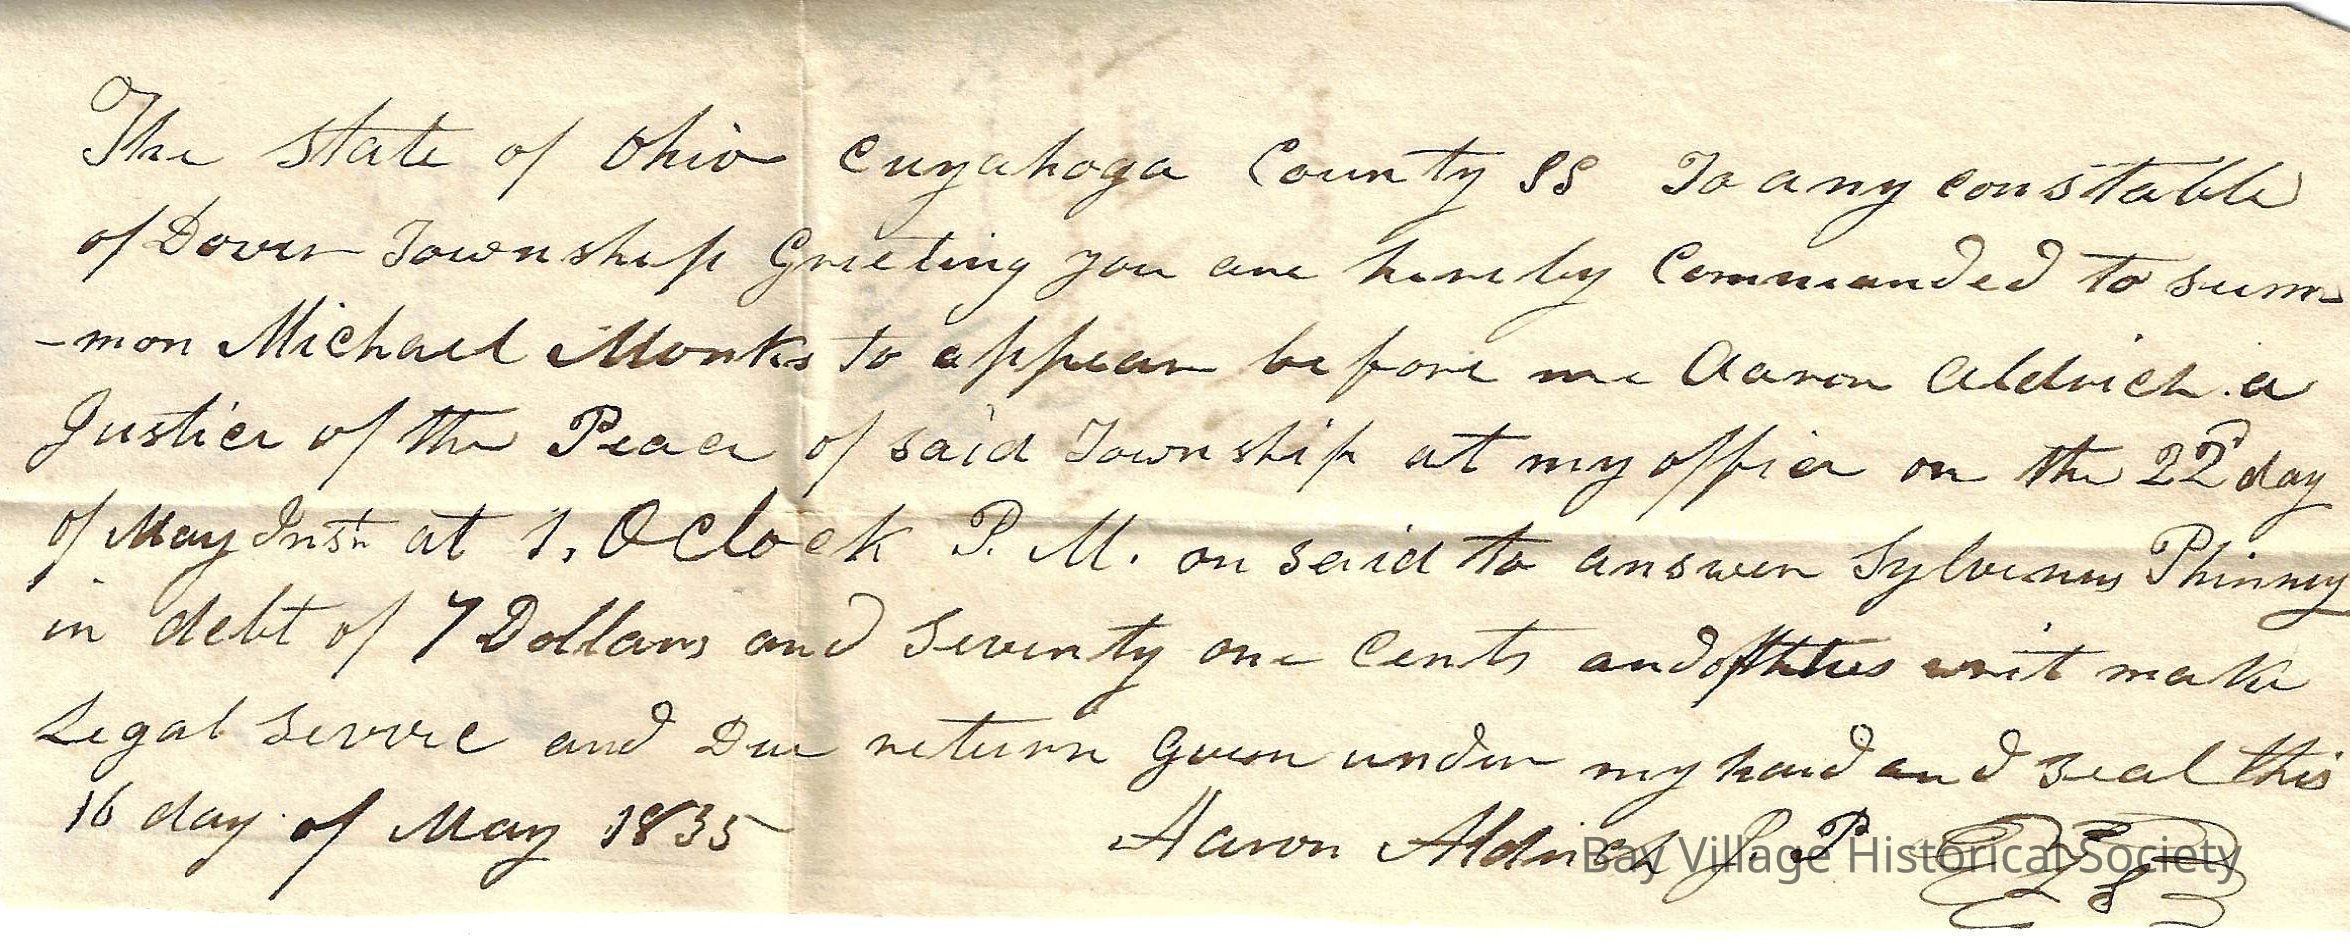 The State of Ohio Cuyahoga County SS To any constable
of Dover Township Greeting you are hereby Commanded to sum-
-mon Michael Monks to appear before me Aaron Aldrich a
Justice of the Peace of said Township at my office on the 22d day
of May Inst at 1, OClock P. M. on said to answer Sylvenus Phinney
in debt of 7 Dollars and Seventy one Cents and of this writ make
Legal Servic and Due return Given under my hand and seal this
16 day of May 1835 Aaron Aldrich J. P L S
Bay Village Historical Society